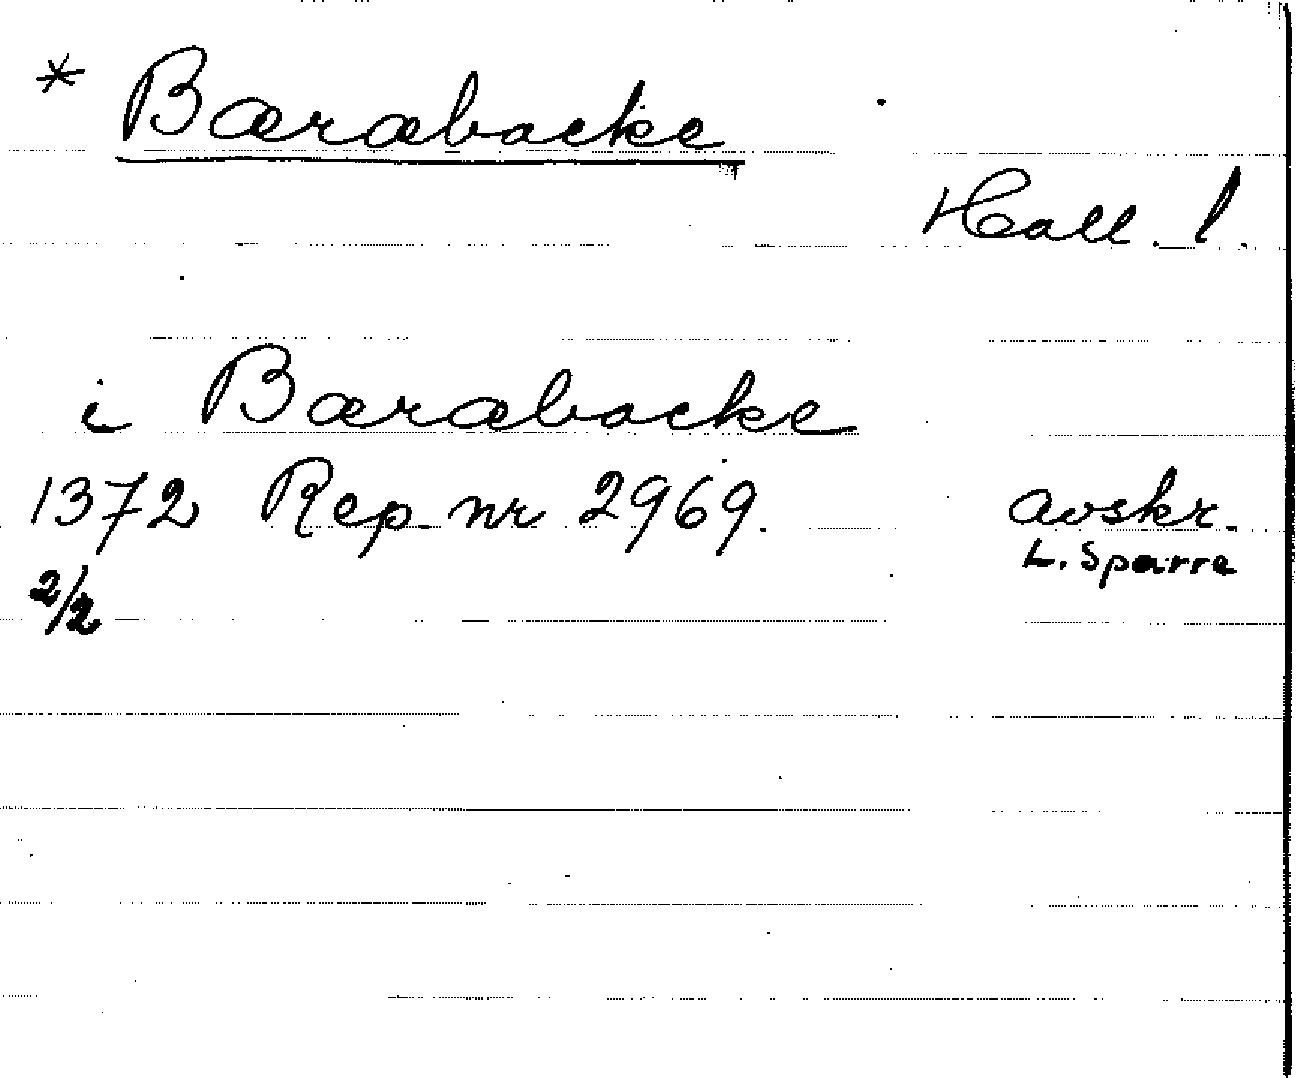 * Bæræbacke
Hall. l.
i Bæræbacke
1372 Rep. nr 2969. avskr.
L. Sparre
2/2